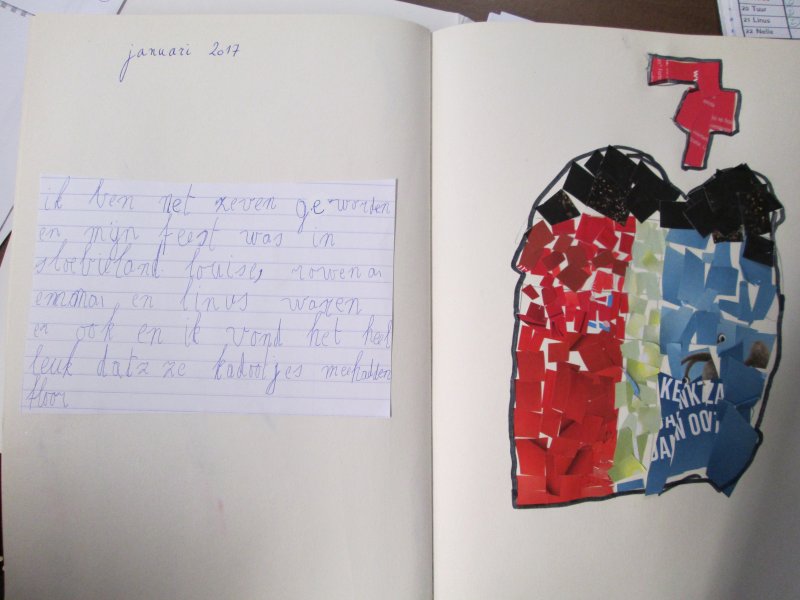 januari 2017
ik ben net zeven geworten
en mijn feest was in
louise, rowena
en linus waren
er ook en ik vond het heel
leuk datz ze kadootjes meehadden
floor
20 Tuur
21 Linus
22 Nelle
7